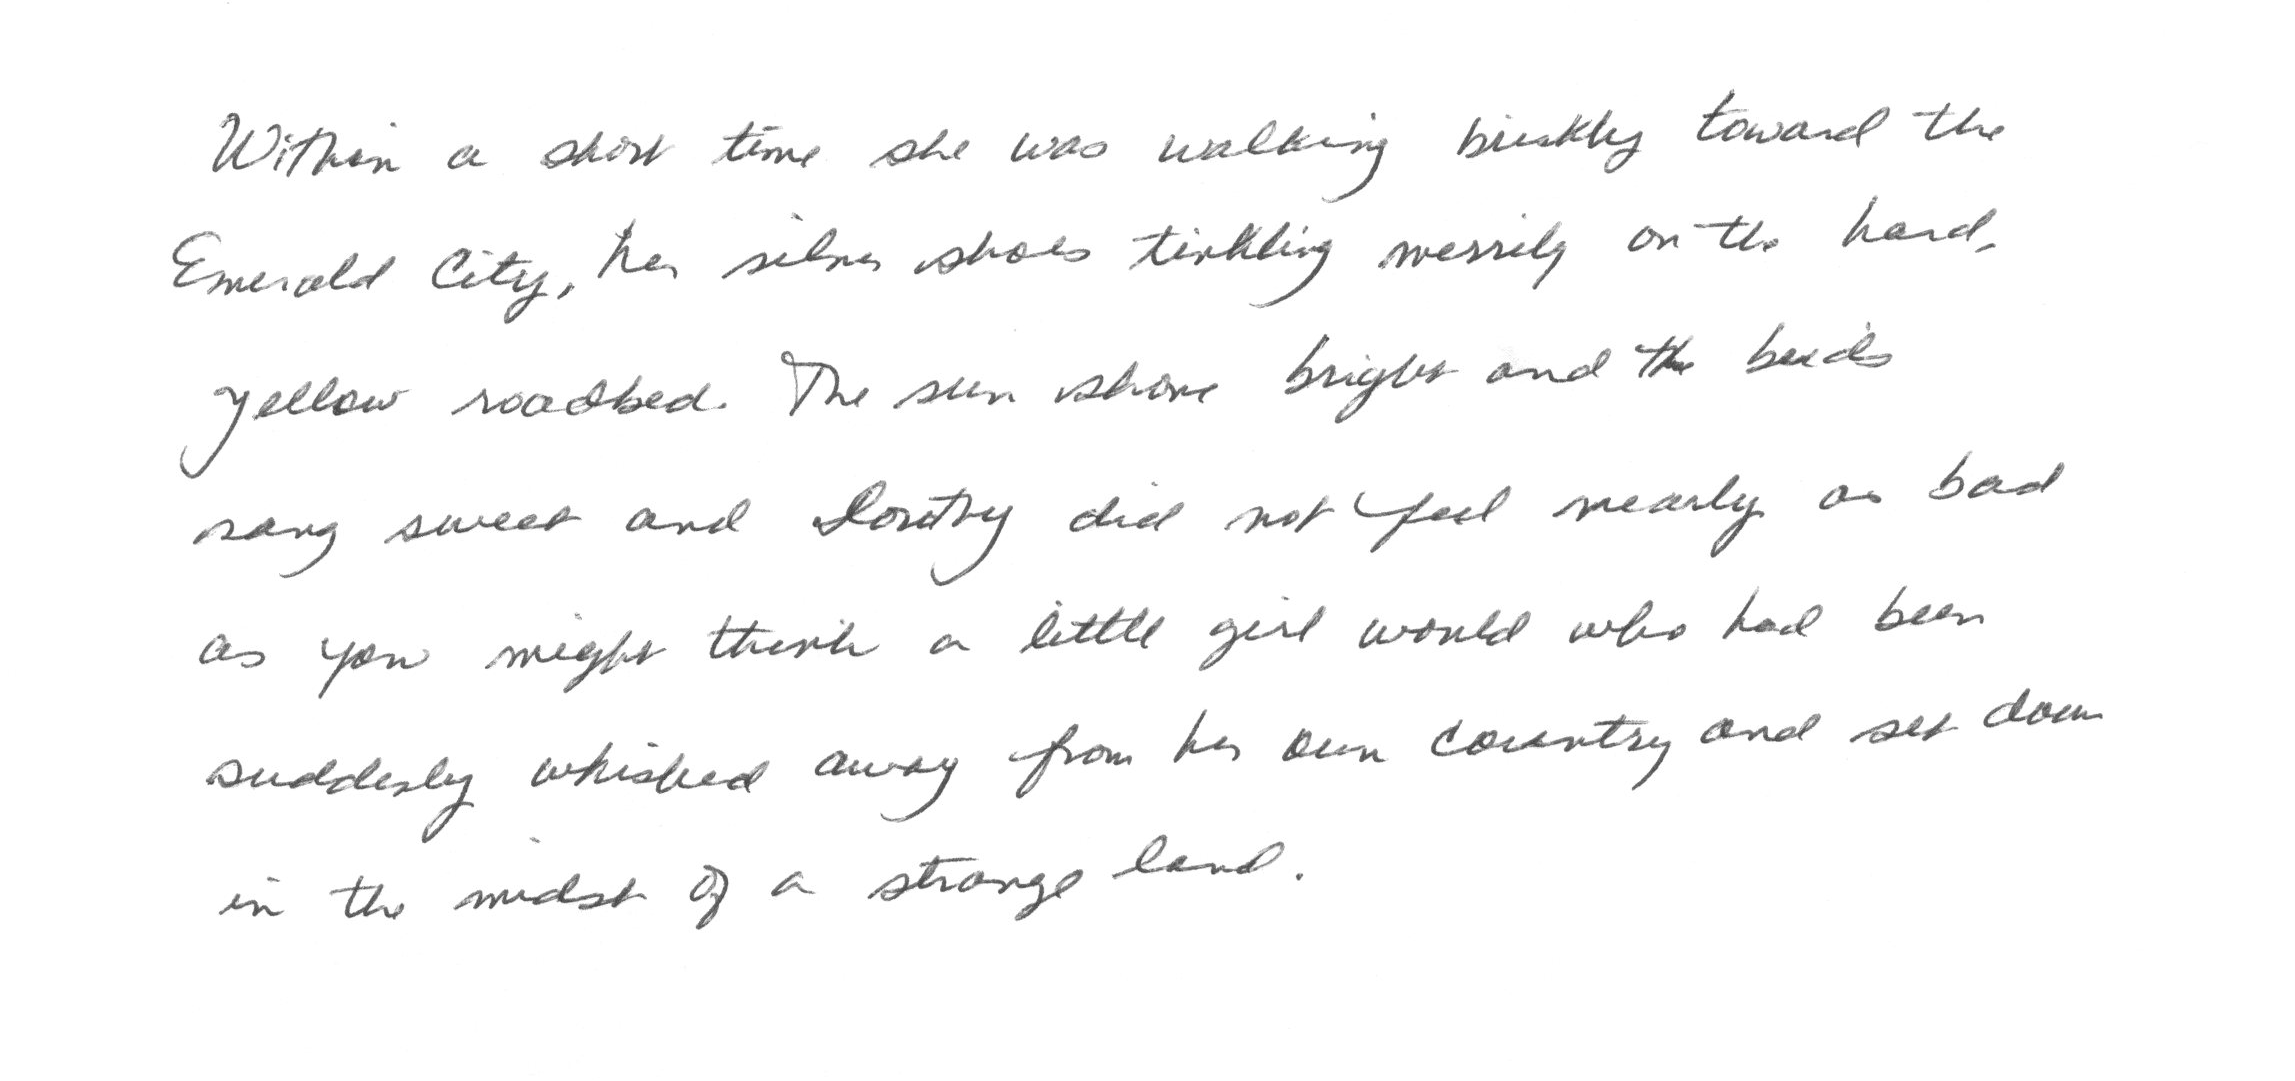 Within a short time she was walking briskly toward the
Emerald City, her silver shoes tinkling merrily on the hard,
yellow roadbed. The sun shone bright and the birds
sang sweet and Dorothy did not feel nearly as bad
as you might think a little girl would who had been
suddenly whisked away from her own country and set down
in the midst of a strange land.